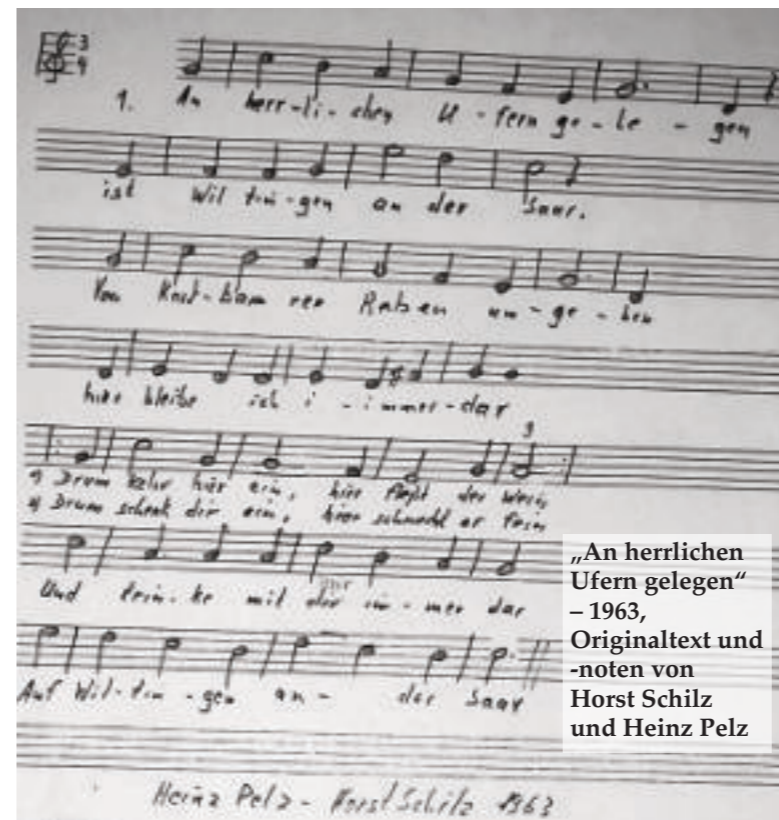 3
4
1. An herr-li-chen U-fern ge-le-gen
ist Wil tin-gen an der Saar.
Von Kost-baren Reben um-ge-ben
hier bleibe ich i-immer-dar
3
1) Drum kehr hier ein, hier fließt der Wein
2) Drum schenk dir ein, hier schmeckt er fein
Und trin-ke mit dir im-mer dar
Auf Wil-tin-gen an-der Saar
Heinz Pelz - Horst Schilz 1963
„An herrlichen
Ufern gelegen“
– 1963,
Originaltext und
-noten von
Horst Schilz
und Heinz Pelz